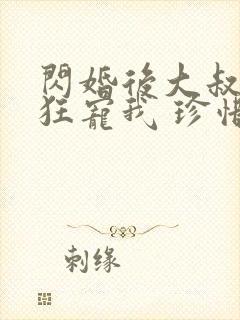 閃婚後大叔
狂寵我 珍惜
刺缘